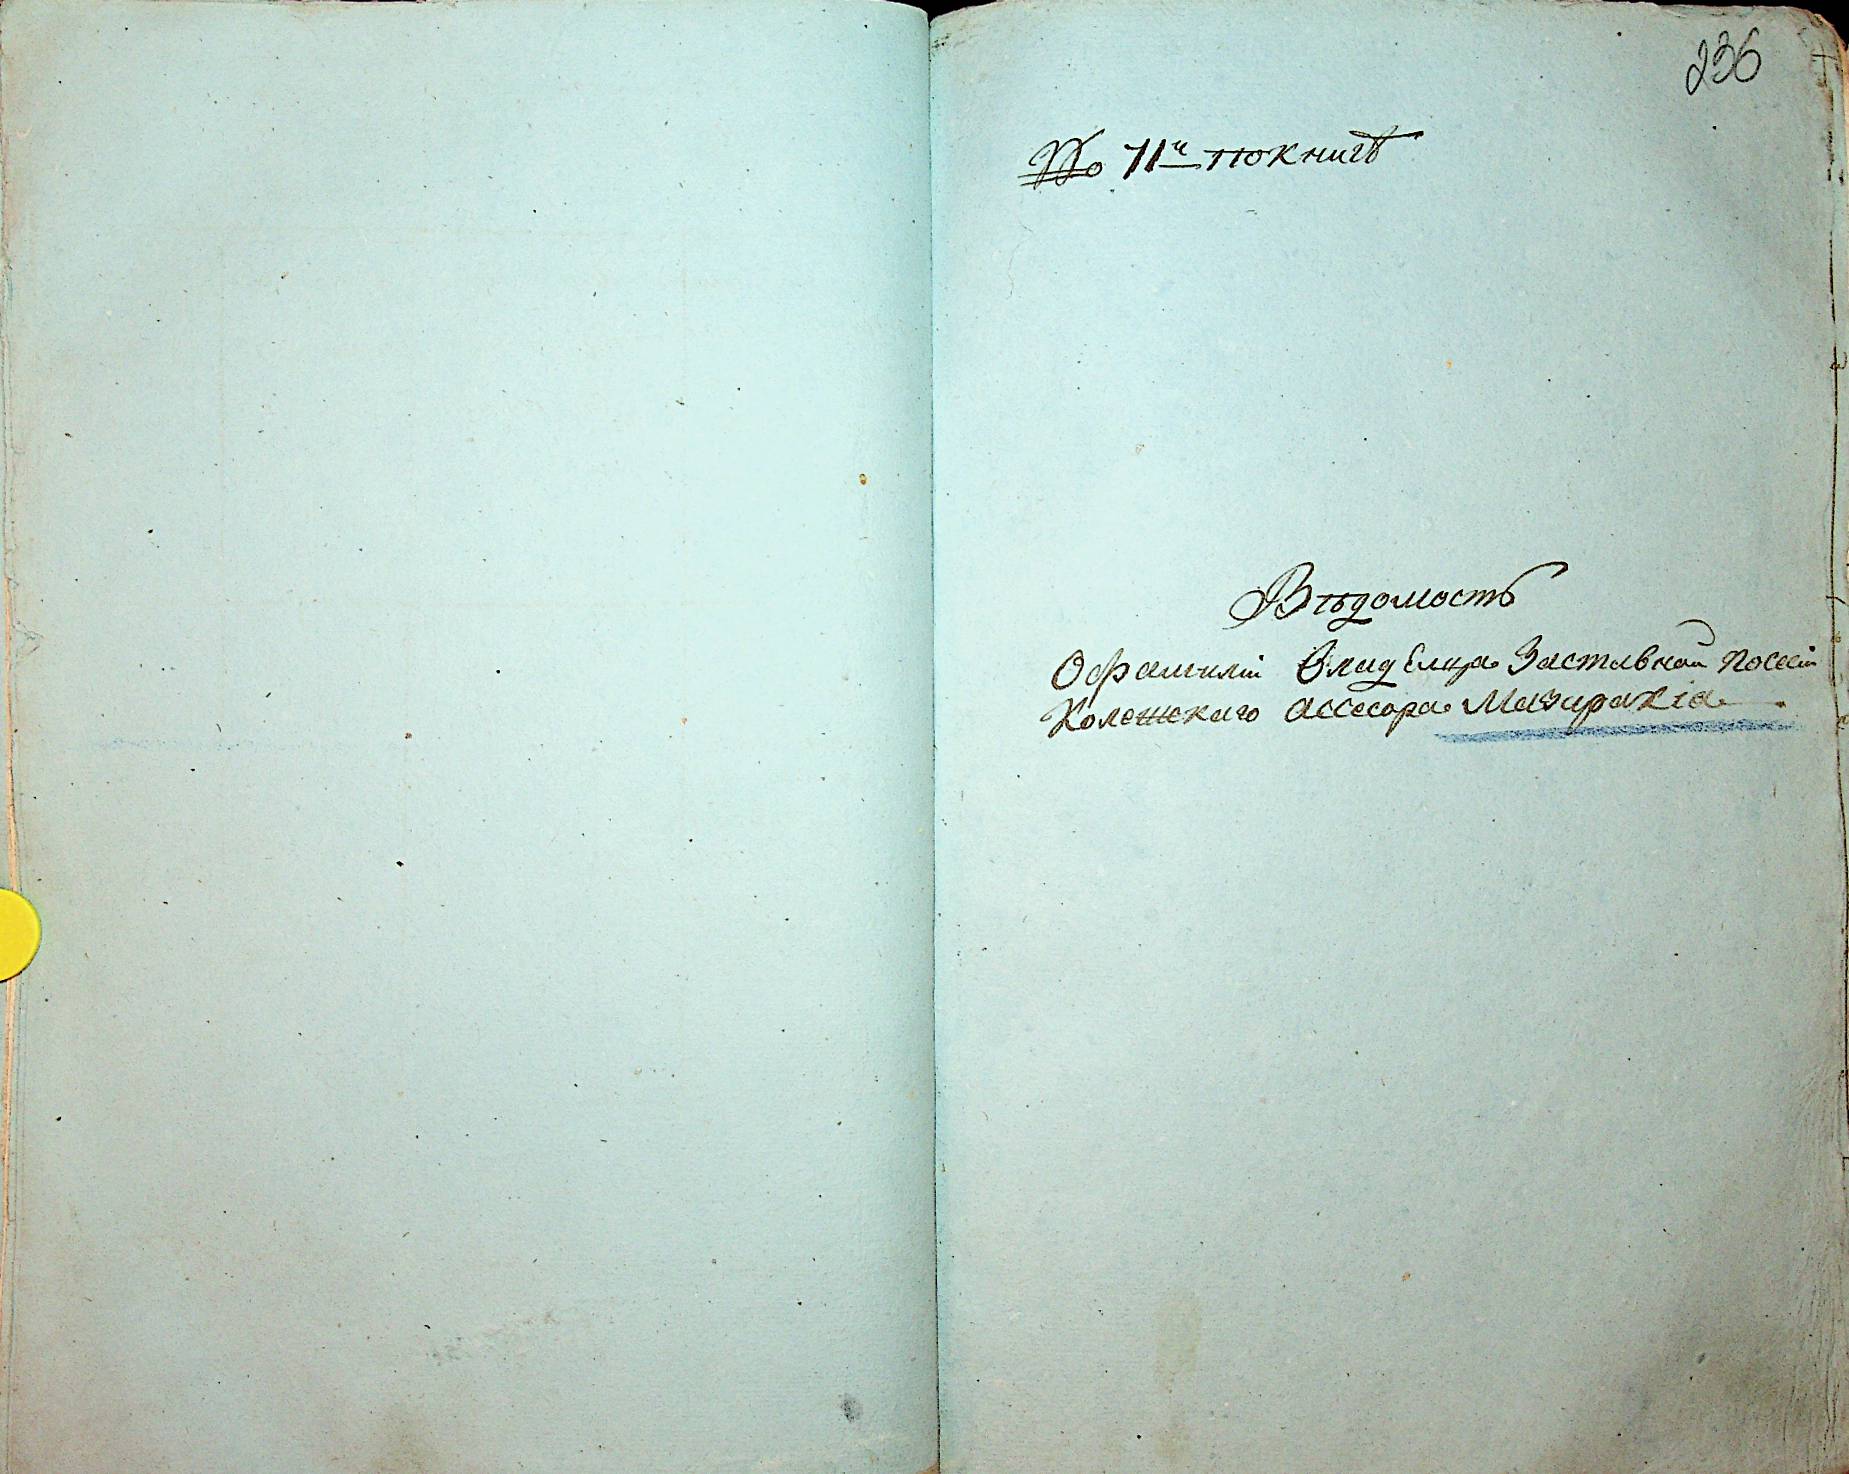 236
No 11й по книгѣ
Вѣдомость
О фамиліи Владельца Заставной Посеій
Колежскаго Ассесора Мазаракія